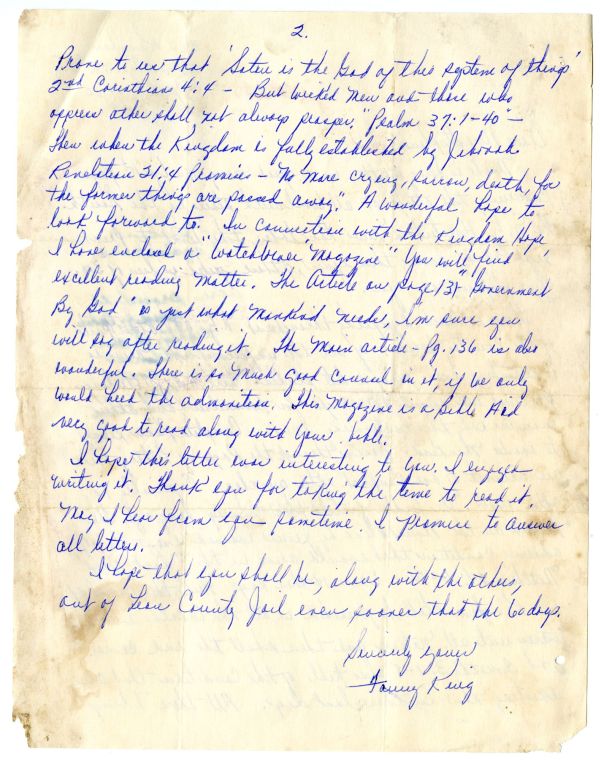 2.
Prove to us that 'Satan is the God of this system of things'
2nd Corinthians 4:4 - But wicked men and those who
oppress other shall not always prosper. "Psalm 37:1-40" -
Then when the Kingdom is fully established by Jehovah
Revelation 21:4 Promises - "No More crying, sorrow, death, for
the former things are passed away." A wonderful hope to
look forward to. In connection with the Kingdom Hope,
I have enclosed a "Watchtower Magazine" You will find
excellent reading matter. The Article on page 131 "Government
By God" is just what Mankind needs, I'm sure you
will say after reading it. The Main article - Pg. 136 is also
wonderful. There is so Much good council in it, if we only
would heed the admonition. This Magazine is a Bible Aid
very good to read along with your bible.
I hope this letter was interesting to you. I enjoyed
writing it. Thank you for taking the time to read it.
May I hear from you sometime. I promise to answer
all letters.
I hope that you shall be, along with the others,
out of Leon County Jail even sooner that the 60 days.
Sincerly yours
King